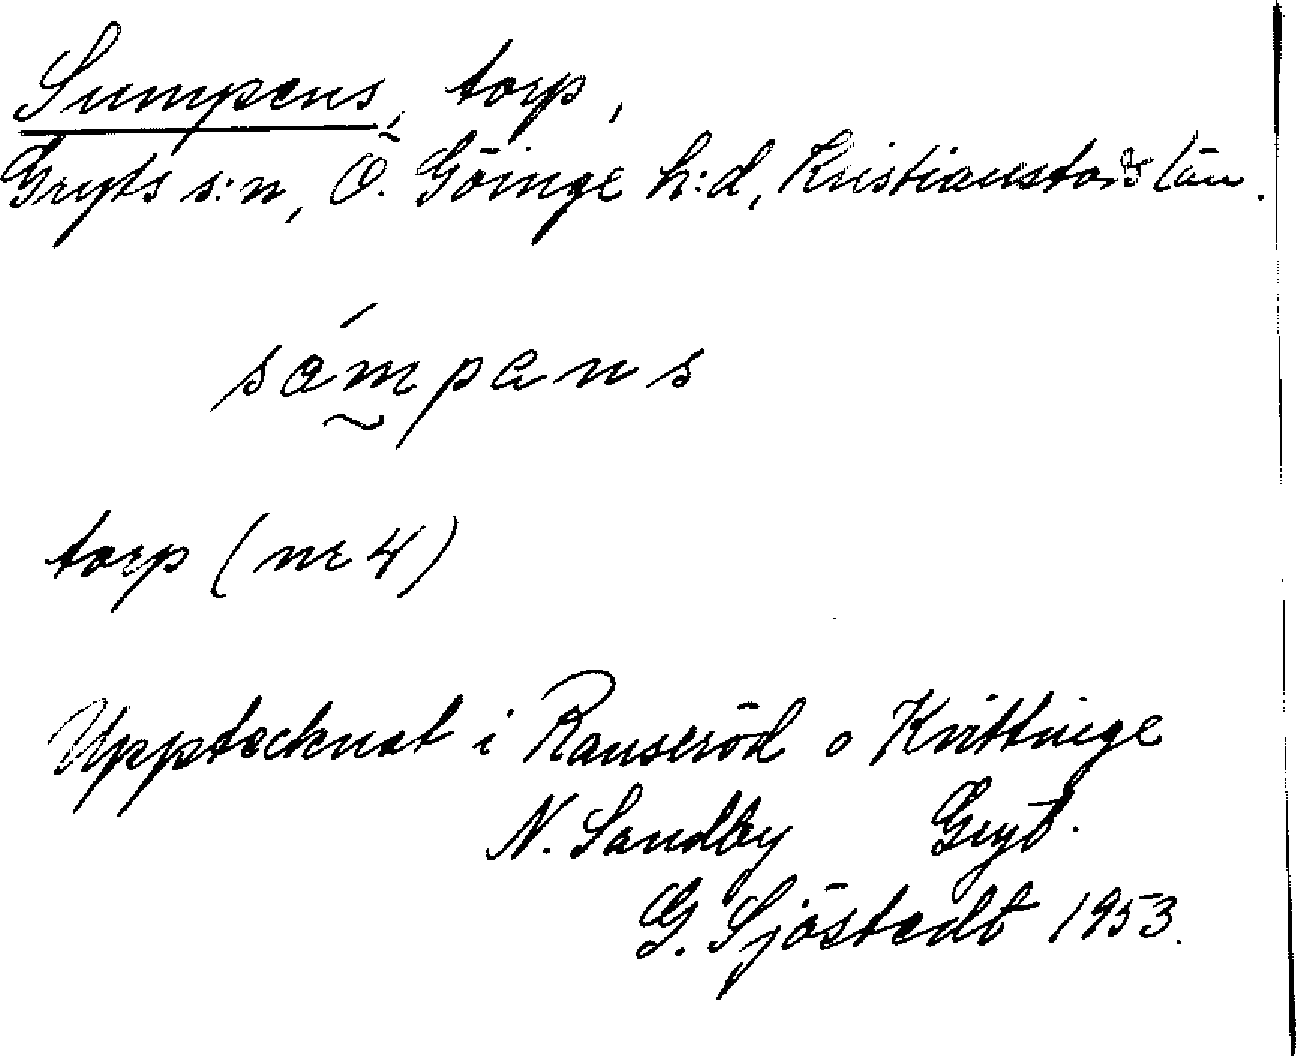 Sumpens, torp,
Gryts s:n, Ö. Göinge h:d, Kristianstads län.
sómpens
torp (nr 4)
Upptecknat i Ranseröd o Knittinge
N. Sandby Gryt.
G. Sjöstedt 1953.